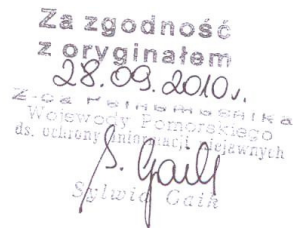 Za zgodność
z oryginałem
28.09.2010r.
Z-ca Pełnomocnika
Wojewody Pomorskiego
ds. ochrony informacji niejawnych
S. Gaik
Sylwia Gaik